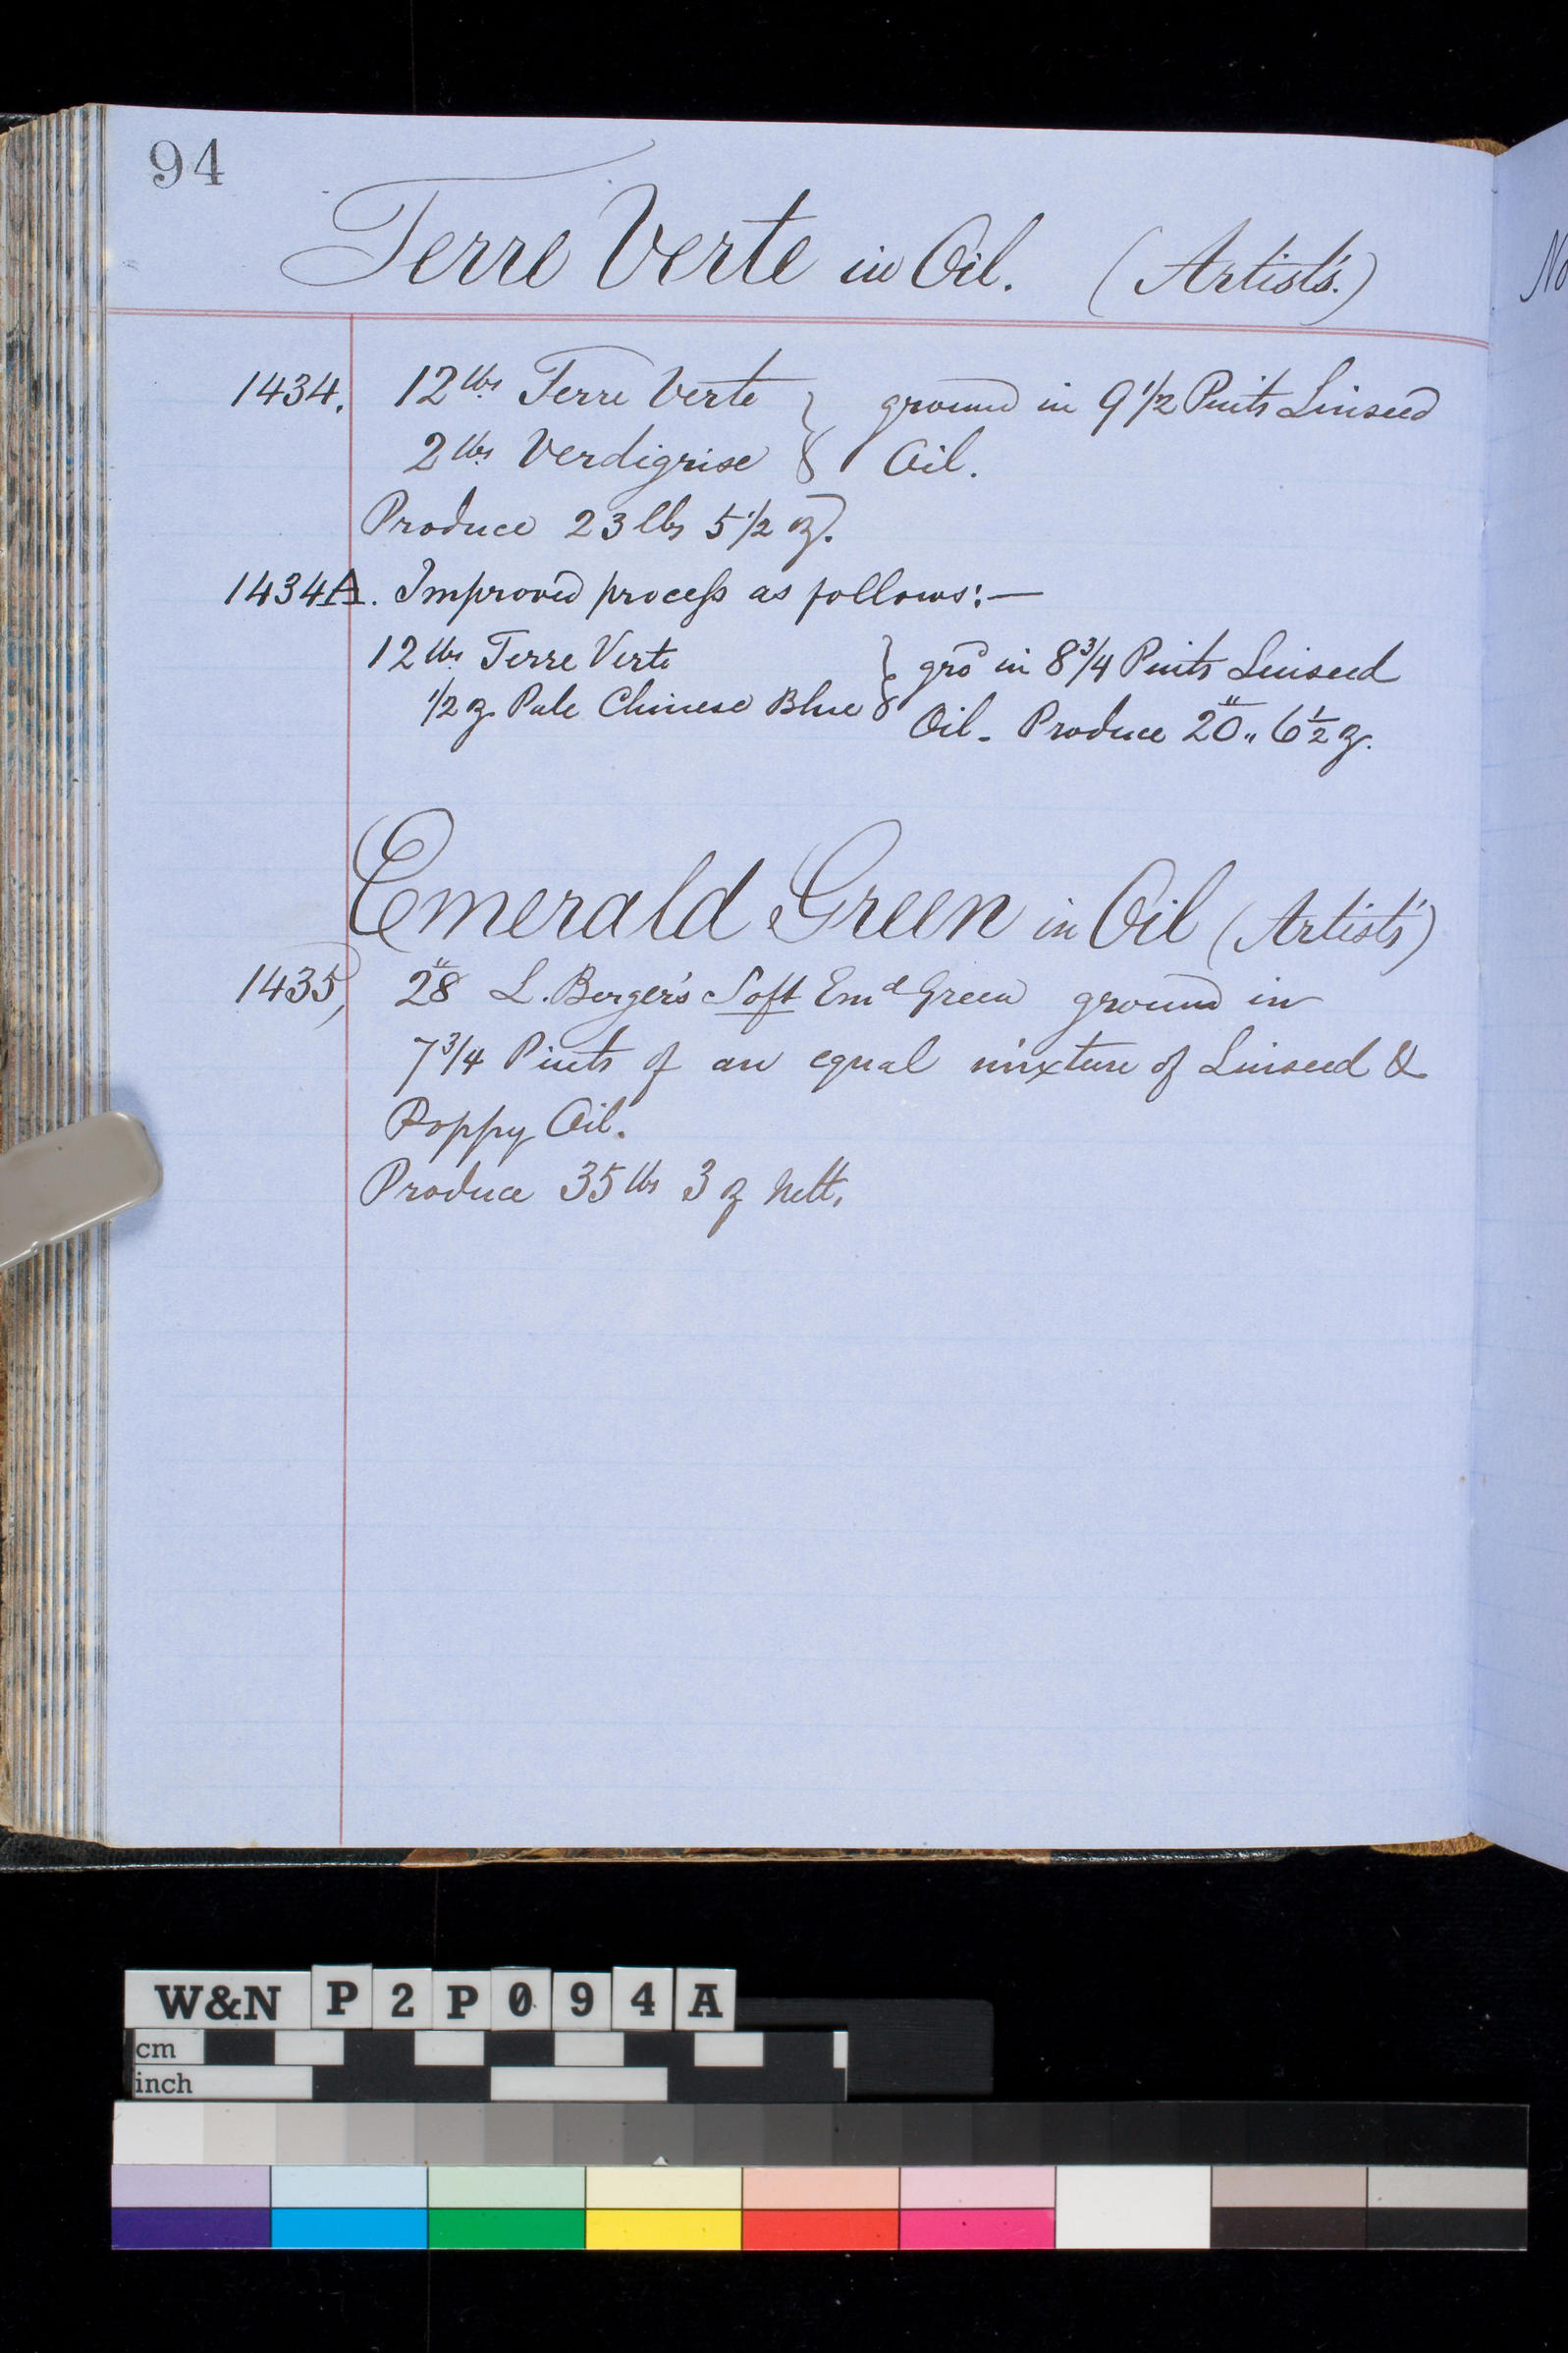 94
Terre Verte in Oil. (Artists'.)
1434. 12 lbs. Terre Verte } ground in 9 1/2 Pints Linseed
2 lbs. Verdigrise } Oil.
Produce 23 lbs 5 1/2 oz.
1434A. Improved process as follows:—
12 lbs Terre Verte } grd in 8 3/4 Pints Linseed
1/2 oz. Pale Chinese Blue } Oil - Produce 20 " 6 1/2 oz.
Emerald Green in Oil (Artists')
1435, 28 L. Berger's Soft Emd Green ground in
7 3/4 Pints of an equal mixture of Linseed &
Poppy Oil.
Produce 35 lbs 3 oz nett.
No
W&N P2P094A
cm
inch